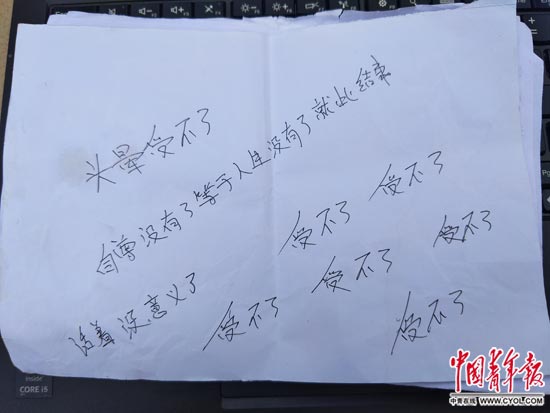 头晕受不了
自尊没有了等于人生没有了就此结束
受不了
受不了
受不了
受不了
活着没意义了
受不了
受不了
inside
CORE i5
中国青年报
中青在线 WWW.CYOL.COM